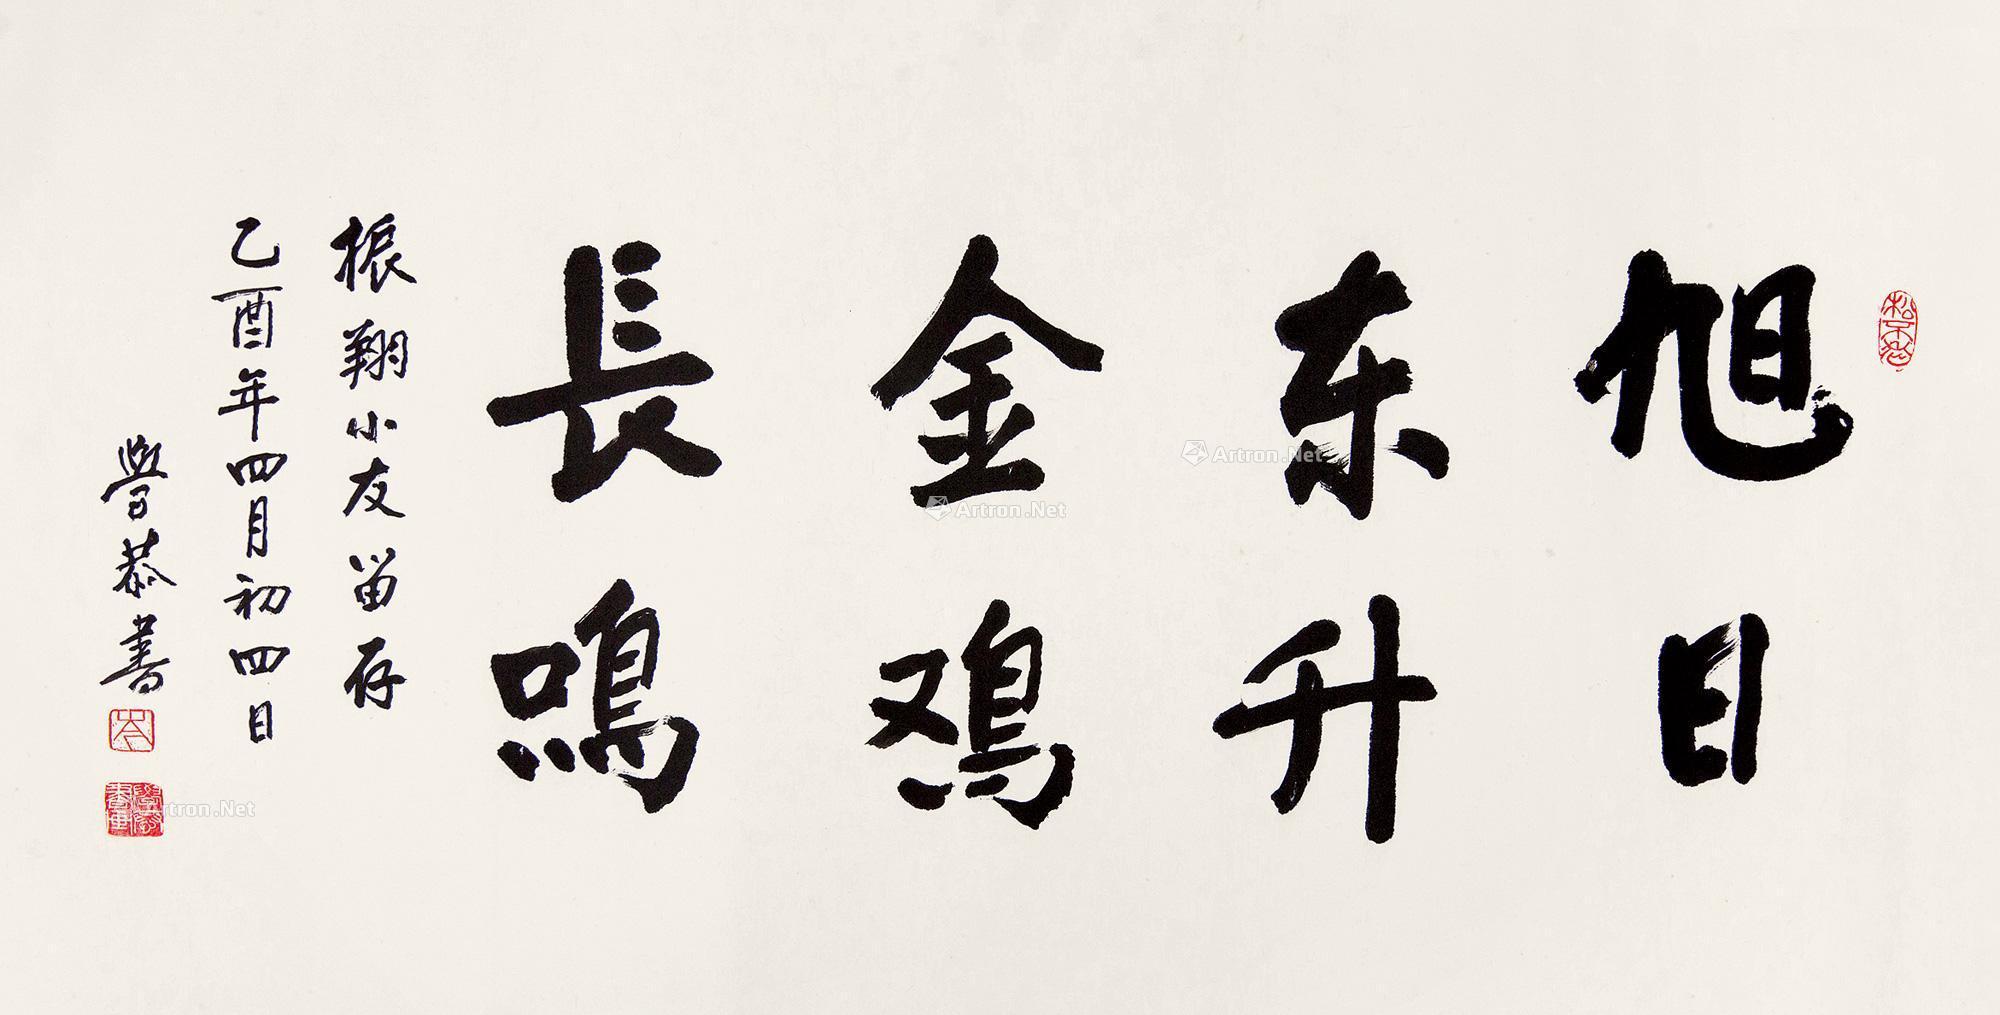 旭日
东升
金鸡
長鳴
振翔小友留存
乙酉年四月初四日
學恭書
Artron.Net
Artron.Net
Artron.Net